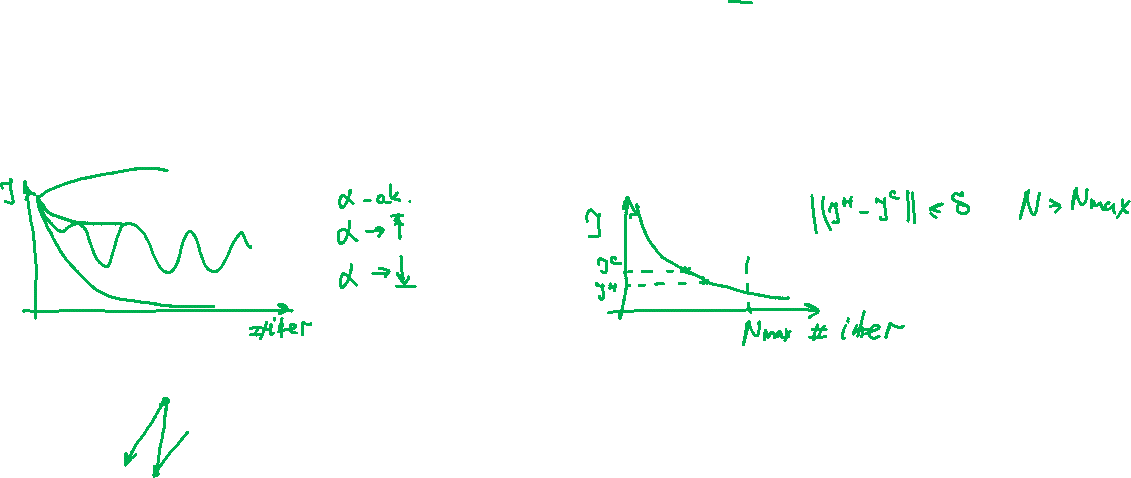 J
# iter
α - ok.
α → ↑
α → ↓
J
Jᶜ
Jᴴ
Nmax # iter
||Jᴴ - Jᶜ|| ≤ δ N > Nmax